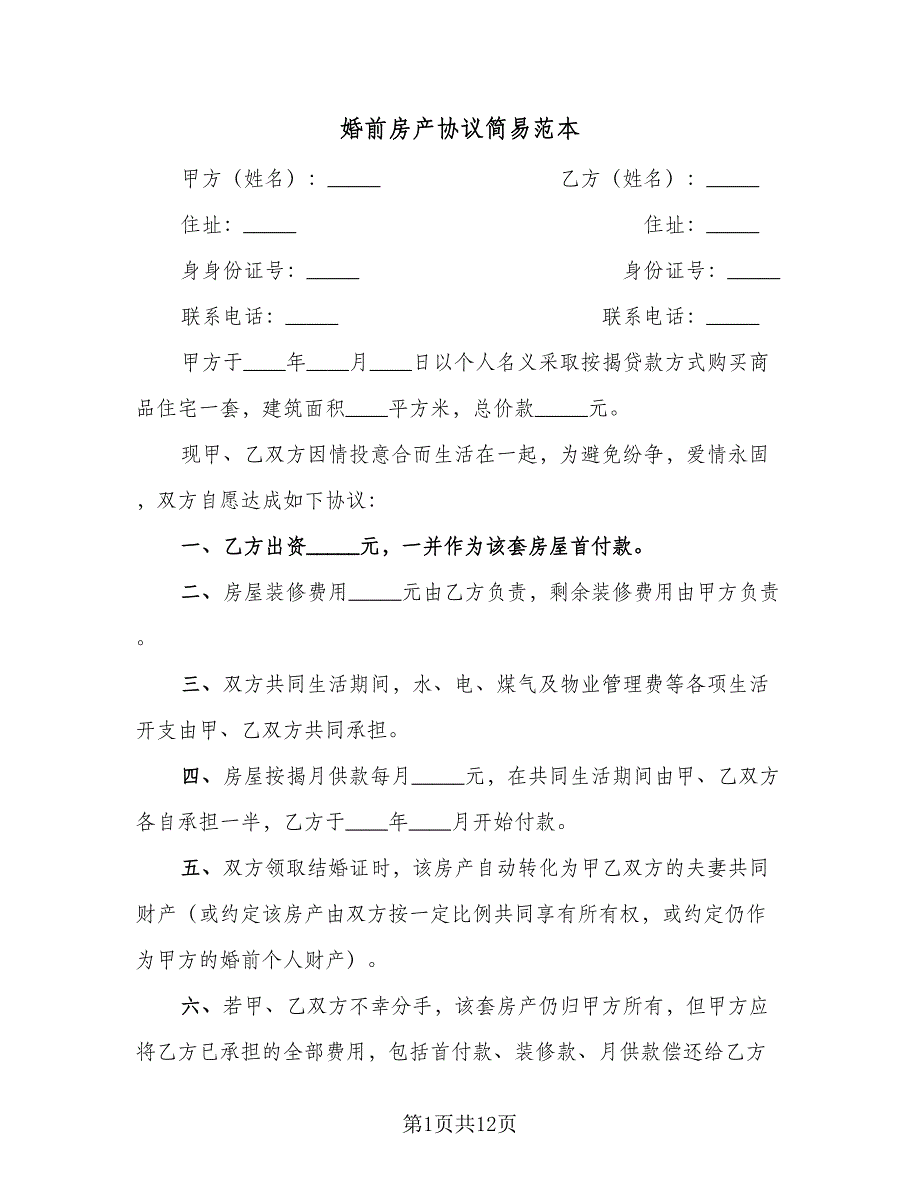 婚前房产协议简易范本
甲方（姓名）：_____ 乙方（姓名）：_____
住址：_____ 住址：_____
身身份证号：_____ 身份证号：_____
联系电话：_____ 联系电话：_____
甲方于____年____月____日以个人名义采取按揭贷款方式购买商
品住宅一套，建筑面积____平方米，总价款_____元。
现甲、乙双方因情投意合而生活在一起，为避免纷争，爱情永固
，双方自愿达成如下协议：
一、乙方出资_____元，一并作为该套房屋首付款。
二、房屋装修费用_____元由乙方负责，剩余装修费用由甲方负责
。
三、双方共同生活期间，水、电、煤气及物业管理费等各项生活
开支由甲、乙双方共同承担。
四、房屋按揭月供款每月_____元，在共同生活期间由甲、乙双方
各自承担一半，乙方于____年____月开始付款。
五、双方领取结婚证时，该房产自动转化为甲乙双方的夫妻共同
财产（或约定该房产由双方按一定比例共同享有所有权，或约定仍作
为甲方的婚前个人财产）。
六、若甲、乙双方不幸分手，该套房产仍归甲方所有，但甲方应
将乙方已承担的全部费用，包括首付款、装修款、月供款偿还给乙方
第1页共12页